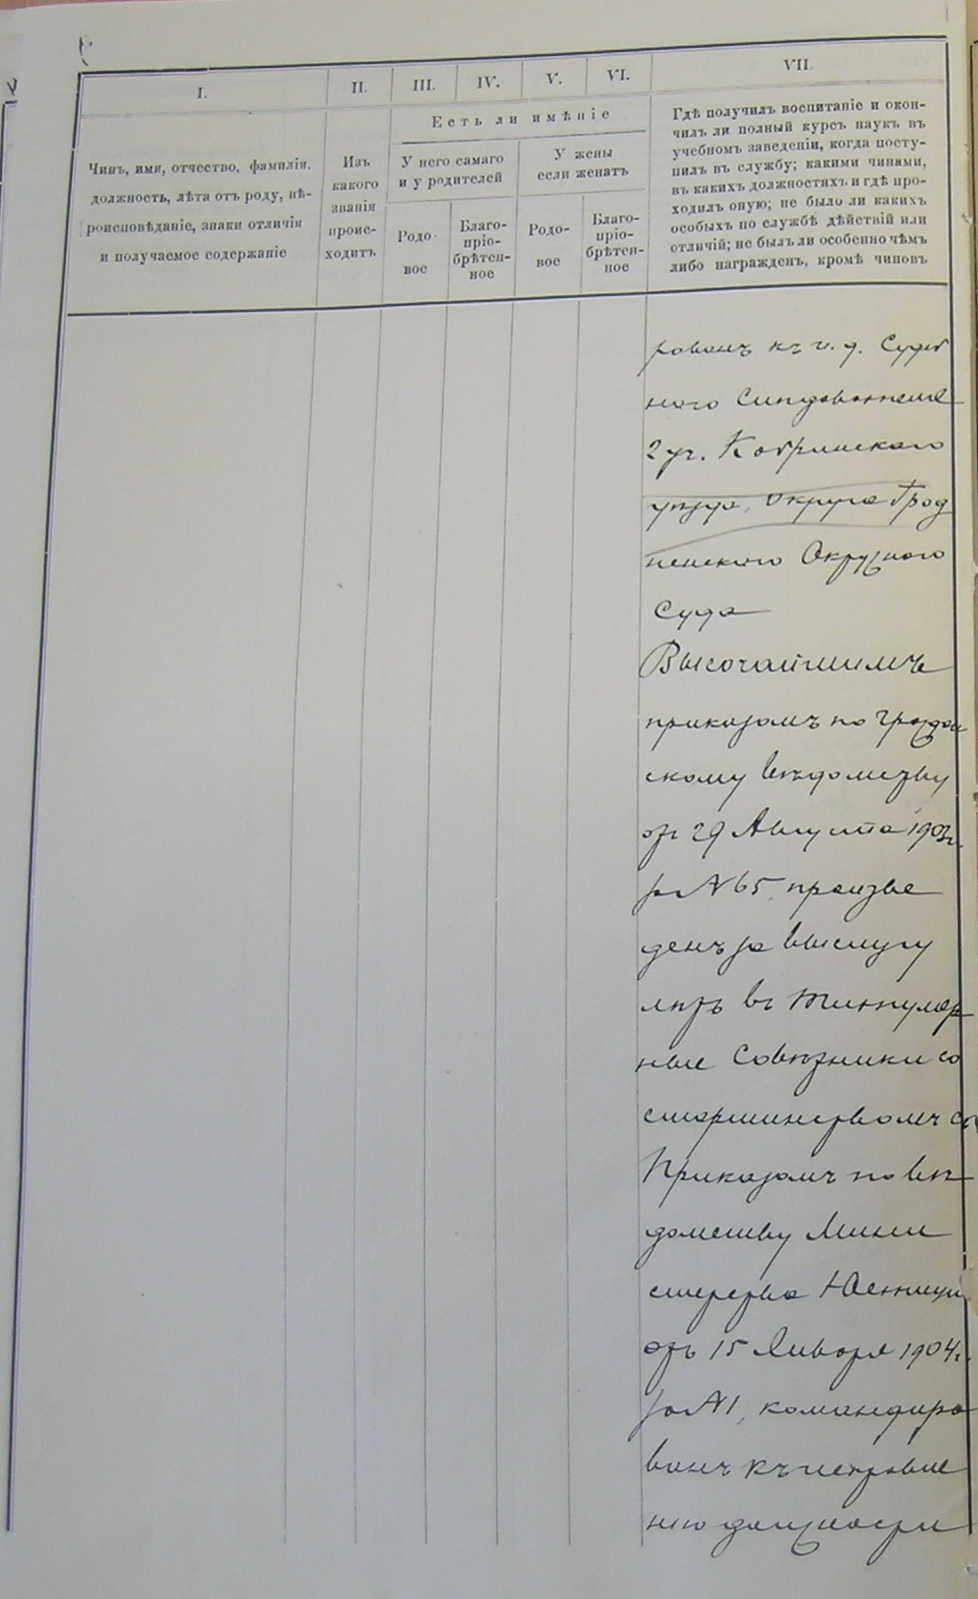 I. II. III. IV. V. VI. VII
Есть ли имѣніе
Чинъ, имя, отчество, фамилія,
должность, лѣта отъ роду, вѣ-
роисповѣданіе, знаки отличія
и получаемое содержаніе
Изъ
какого
званія
проис-
ходитъ
У него самаго
и у родителей
Родо-
вое
Благо-
пріо-
брѣтен-
ное
У жены
если женатъ
Родо-
вое
Благо-
пріо-
брѣтен-
ное
Гдѣ получилъ воспитаніе и окон-
чилъ ли полный курсъ наукъ въ
учебномъ заведеніи, когда посту-
пилъ въ службу; какими чинами,
въ какихъ должностяхъ и гдѣ про-
ходилъ оную; не было ли какихъ
особыхъ по службѣ дѣйствій или
отличій; не былъ ли особенно чѣмъ
либо награжденъ, кромѣ чиновъ
рованъ къ и. д. Судеб
наго Слѣдователя
2 уч. Кобринскаго
уѣзда, округа Грод
ненскаго Окружнаго
Суда
Высочайшимъ
приказомъ по граждан
скому вѣдомству
отъ 29 Августа 1903 г.
за № 65 произве
денъ за выслугу
лѣтъ въ Титуляр
ные Совѣтники со
старшинствомъ съ
Приказомъ по вѣ
домству Мини
стерства Юстиціи
отъ 15 Января 1904 г.
за № 1, командиро
ванъ къ исправле
нію должности